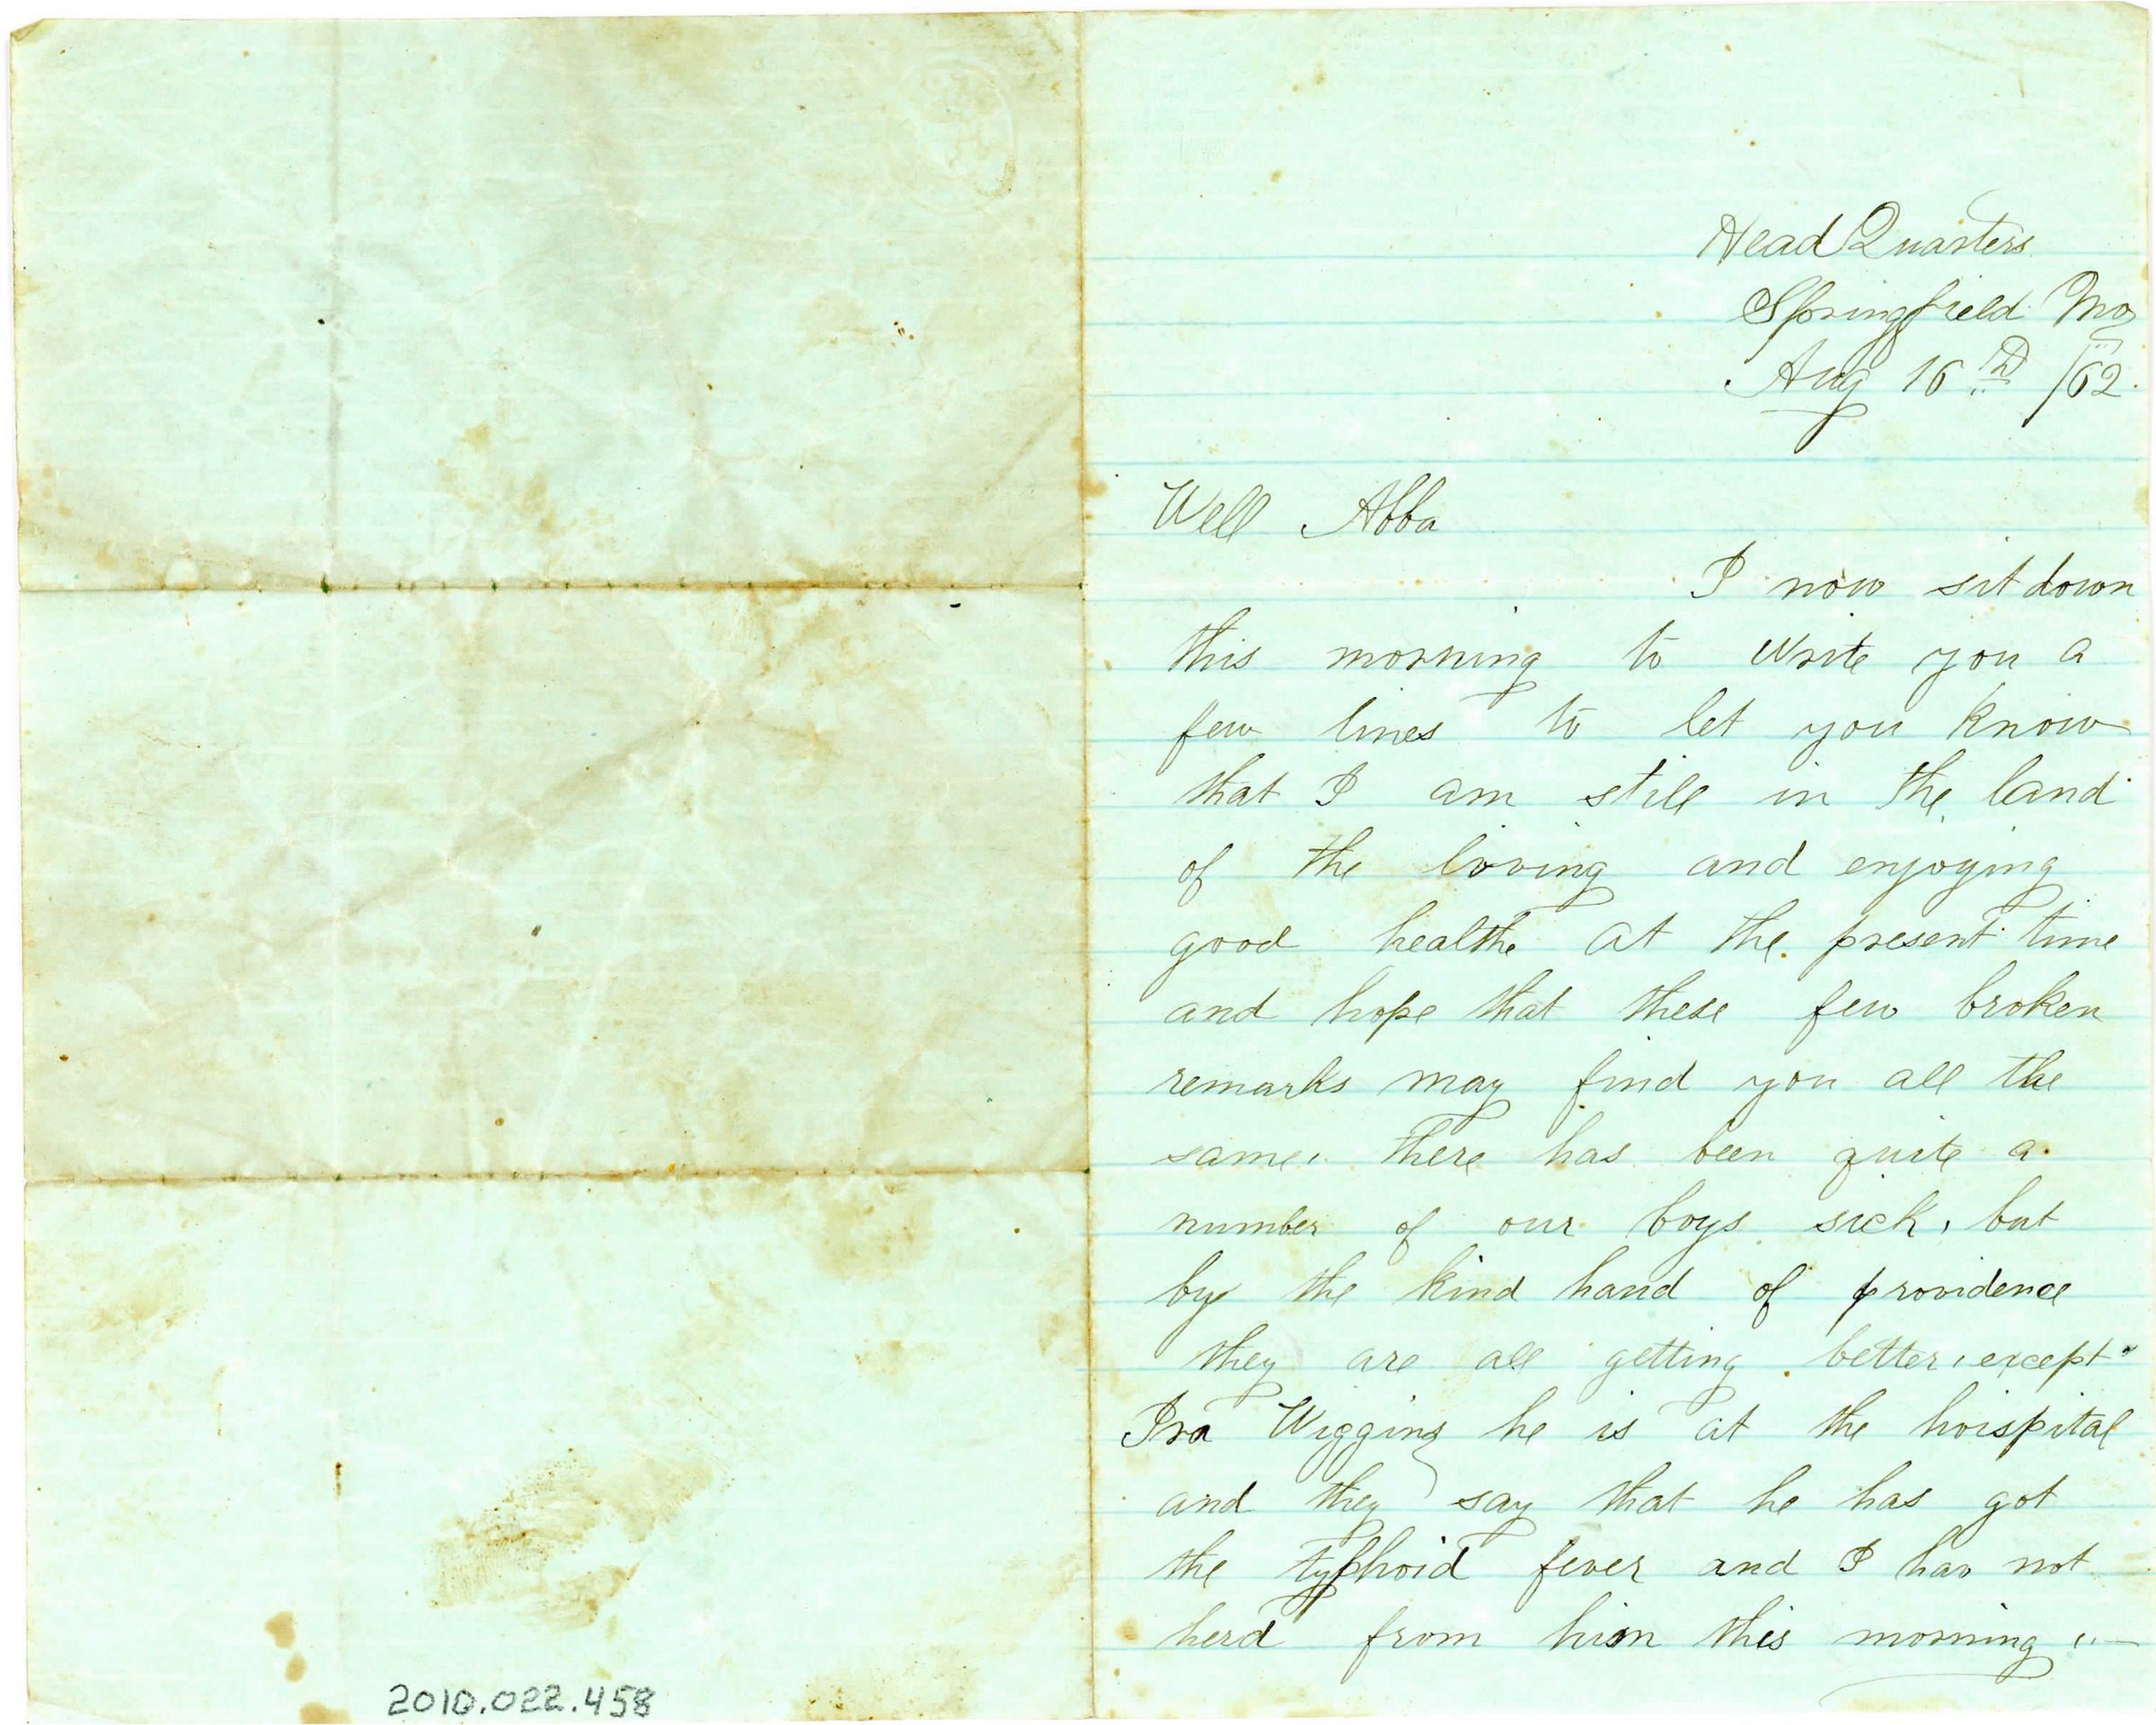 Head Quarters
Springfield Mo
Aug 16th /62.
Well Abba
I now sit down
this morning to write you a
few lines to let you know
that I am still in the land
of the living and enjoying
good healthe at the present time
and hope that these few broken
remarks may find you all the
same, there has been quite a
number of our boys sick, but
by the kind hand of providence
they are all getting better, except
Ira Wiggins he is at the hoispital
and they say that he has got
the typhoid fever and I hav not
herd from him this morning,—
2010.022.458